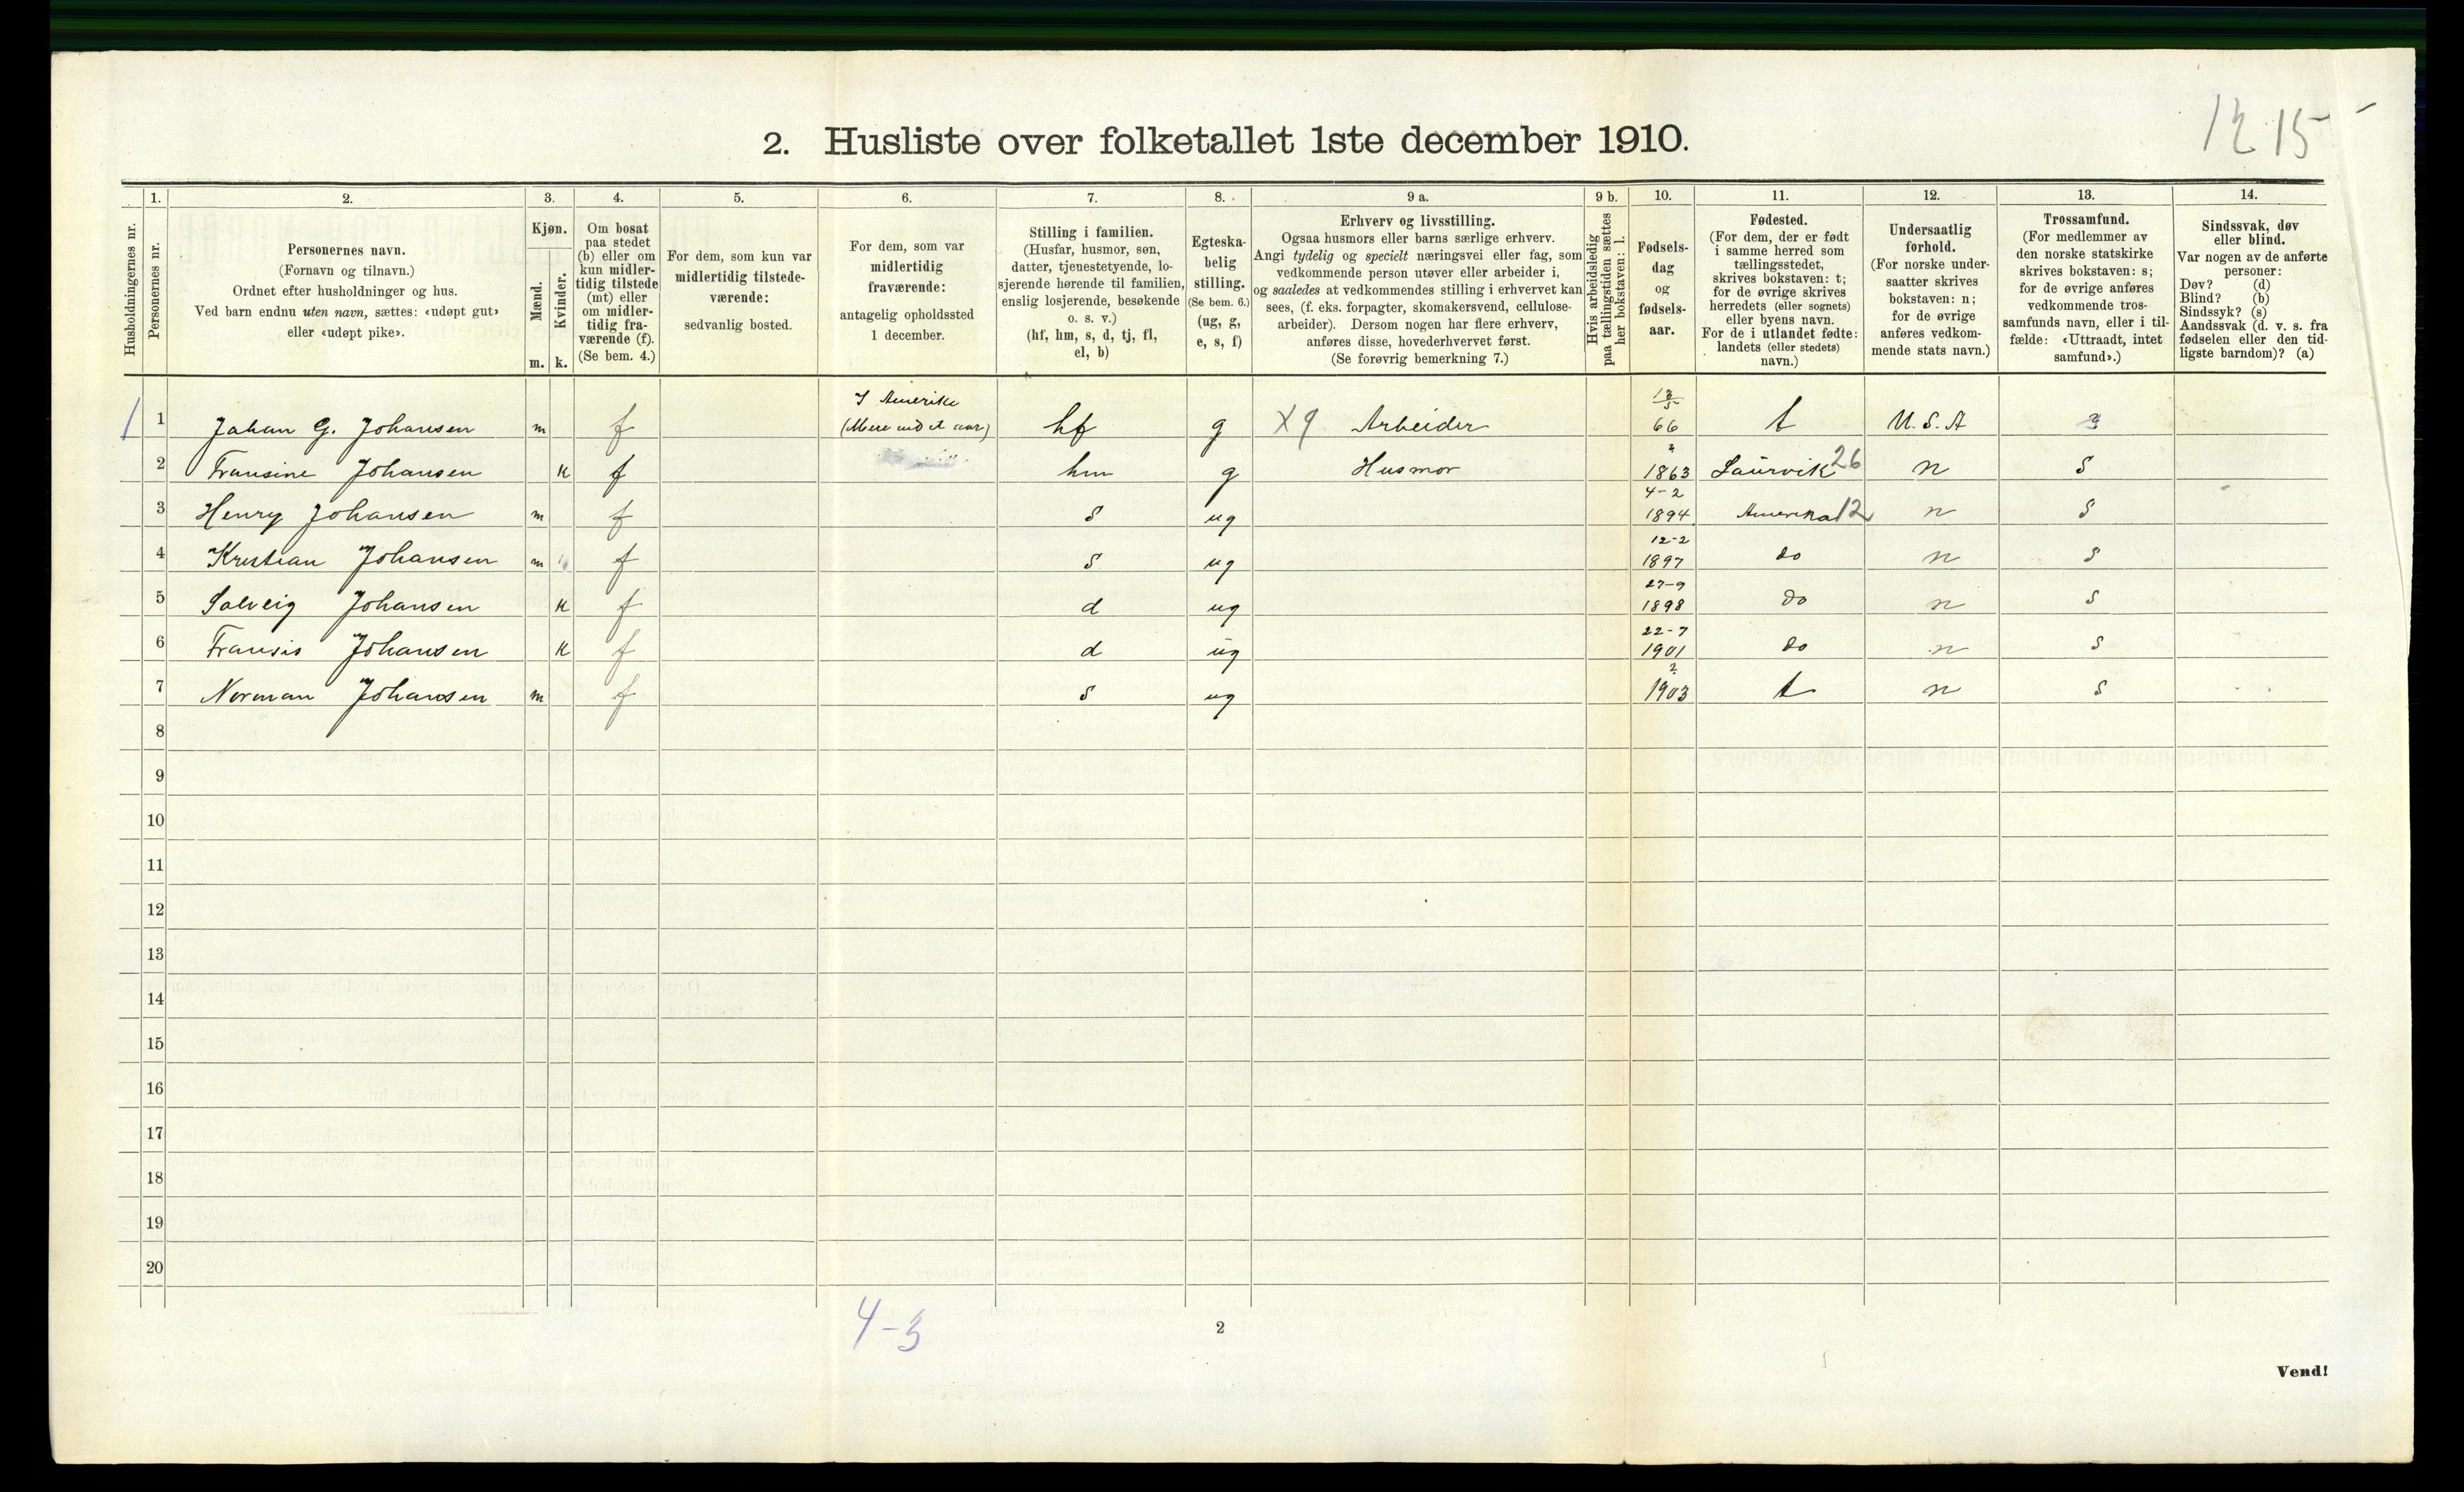 12 15
2. Husliste over folketallet 1ste december 1910.
1. 2. 3. 4. 5. 6. 7. 8. 9 a. 9 b. 10. 11. 12. 13. 14.
Husholdningernes nr.
Personernes nr.
Personernes navn.
(Fornavn og tilnavn.)
Ordnet efter husholdninger og hus.
Ved barn endnu uten navn, sættes: «udøpt gut»
eller «udøpt pike».
Kjøn.
Mænd.
Kvinder.
m. k.
Om bosat
paa stedet
(b) eller om
kun midler-
tidig tilstede
(mt) eller
om midler-
tidig fra-
værende (f).
(Se bem. 4.)
For dem, som kun var
midlertidig tilstede-
værende:
sedvanlig bosted.
For dem, som var
midlertidig
fraværende:
antagelig opholdssted
1 december.
Stilling i familien.
(Husfar, husmor, søn,
datter, tjenestetyende, lo-
sjerende hørende til familien,
enslig losjerende, besøkende
o. s. v.)
(hf, hm, s, d, tj, fl,
el, b)
Egteska-
belig
stilling.
(Se bem. 6.)
(ug, g,
e, s, f)
Erhverv og livsstilling.
Ogsaa husmors eller barns særlige erhverv.
Angi tydelig og specielt næringsvei eller fag, som
vedkommende person utøver eller arbeider i,
og saaledes at vedkommendes stilling i erhvervet kan
sees, (f. eks. forpagter, skomakersvend, cellulose-
arbeider). Dersom nogen har flere erhverv,
anføres disse, hovederhvervet først.
(Se forøvrig bemerkning 7.)
Hvis arbeidsledig
paa tællingstiden sættes
her bokstaven: l.
Fødsels-
dag
og
fødsels-
aar.
Fødested.
(For dem, der er født
i samme herred som
tællingsstedet,
skrives bokstaven: t;
for de øvrige skrives
herredets (eller sognets)
eller byens navn.
For de i utlandet fødte:
landets (eller stedets)
navn.)
Undersaatlig
forhold.
(For norske under-
saatter skrives
bokstaven: n;
for de øvrige
anføres vedkom-
mende stats navn.)
Trossamfund.
(For medlemmer av
den norske statskirke
skrives bokstaven: s;
for de øvrige anføres
vedkommende tros-
samfunds navn, eller i til-
fælde: «Uttraadt, intet
samfund».)
Sindssvak, døv
eller blind.
Var nogen av de anførte
personer:
Døv? (d)
Blind? (b)
Sindssyk? (s)
Aandssvak (d. v. s. fra
fødselen eller den tid-
ligste barndom)? (a)
1 1 Johan G. Johansen m f I Amerike (Mere end et aar) hf g X9 Arbeider 13/5 66 t U. S. A
2 Fransine Johansen k f hm g Husmor ? 1863 Laurvik 26 n s
3 Henry Johansen m f s ug 4-2 1894 Amerika 12 n s
4 Kristian Johansen m f s ug 12-2 1897 do n s
5 Solveig Johansen k f d ug 27-9 1898 do n s
6 Fransis Johansen k f d ug 22-7 1901 do n s
7 Norman Johansen m f s ug ? 1903 t n s
8
9
10
11
12
13
14
15
16
17
18
19
20
4-3
2
Vend!